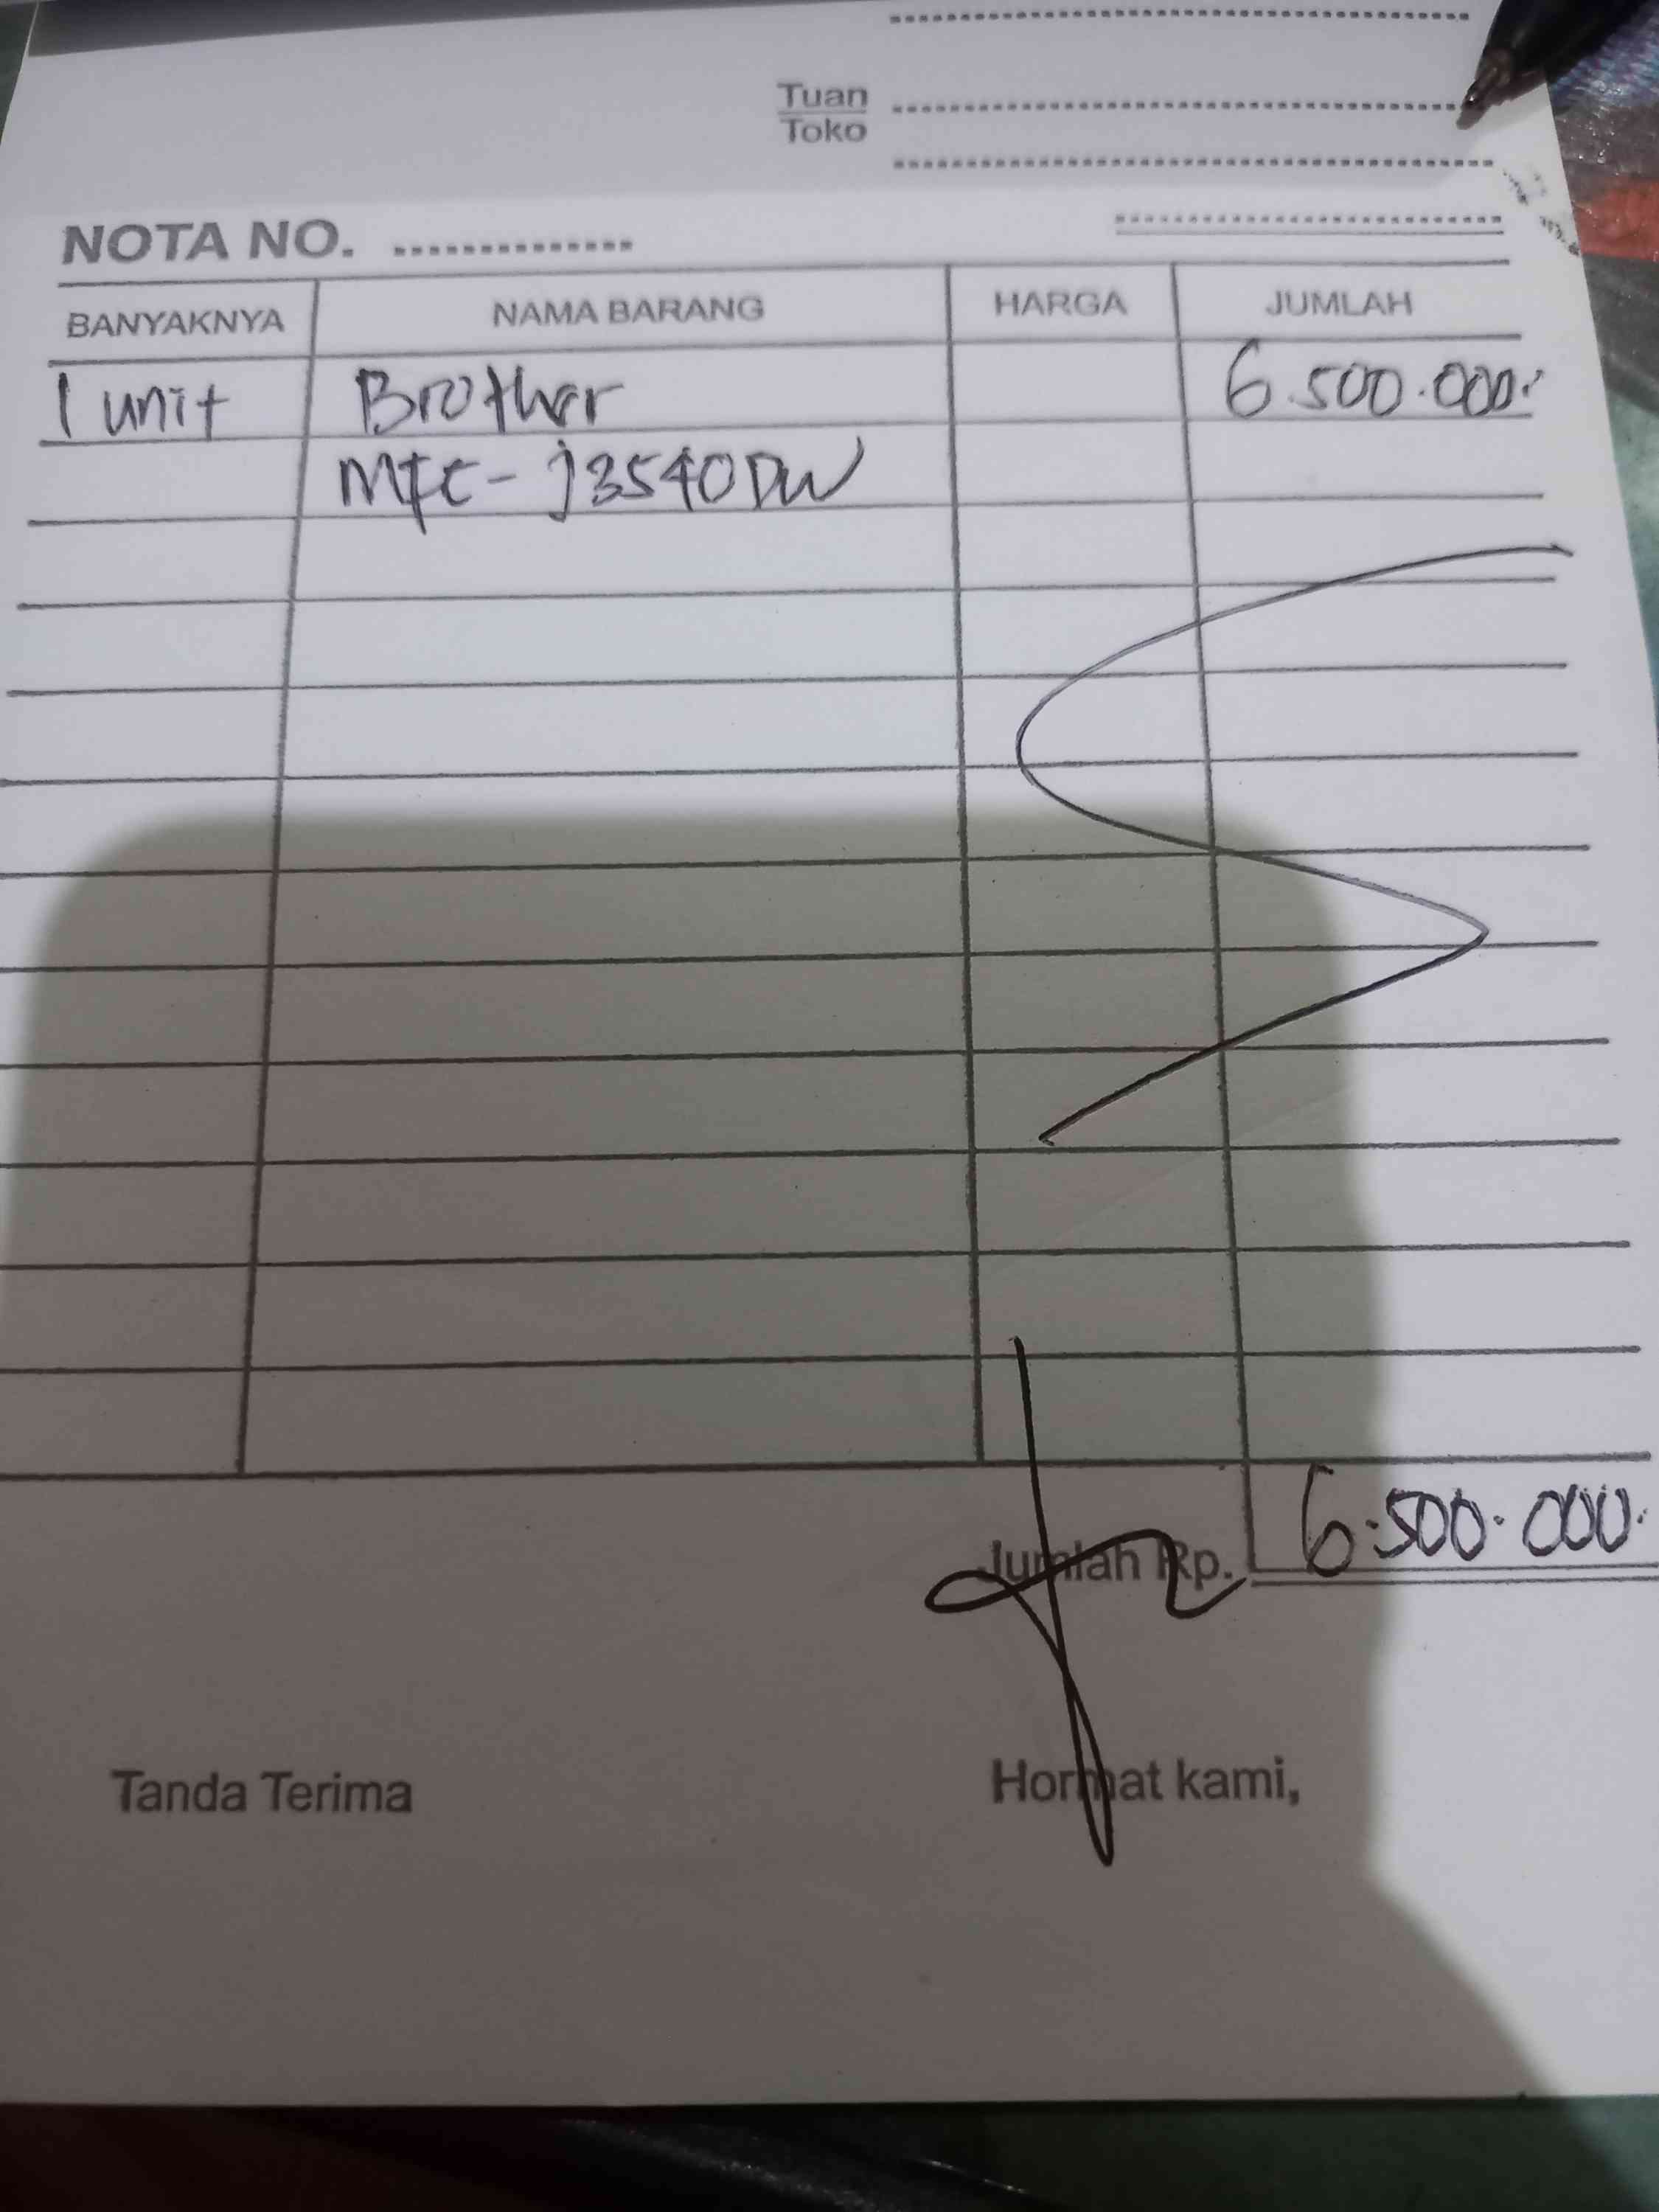 Tuan
Toko
NOTA NO.
BANYAKNYA NAMA BARANG HARGA JUMLAH
1 unit Brother 6.500.000.-
Mfc - j3540DW
Jumlah Rp. 6.500.000.
Tanda Terima Hormat kami,